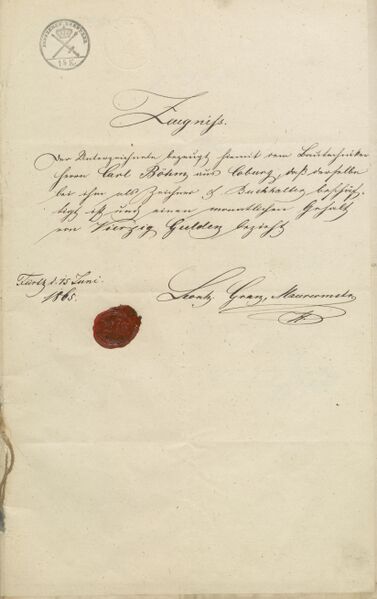 15 K.
Zeugniss.
Der Unterzeichnete bezeugt hiemit dem Bautechniker
Herrn Carl Böhm aus Coburg, daß derselbe
bei ihm als Zeichner & Buchhalter beschäf-
tigt ist und einen monatlichen Gehalt
von Vierzig Gulden bezieht
Fürth d. 15 Juni
1865.
Gran, Maurermstr